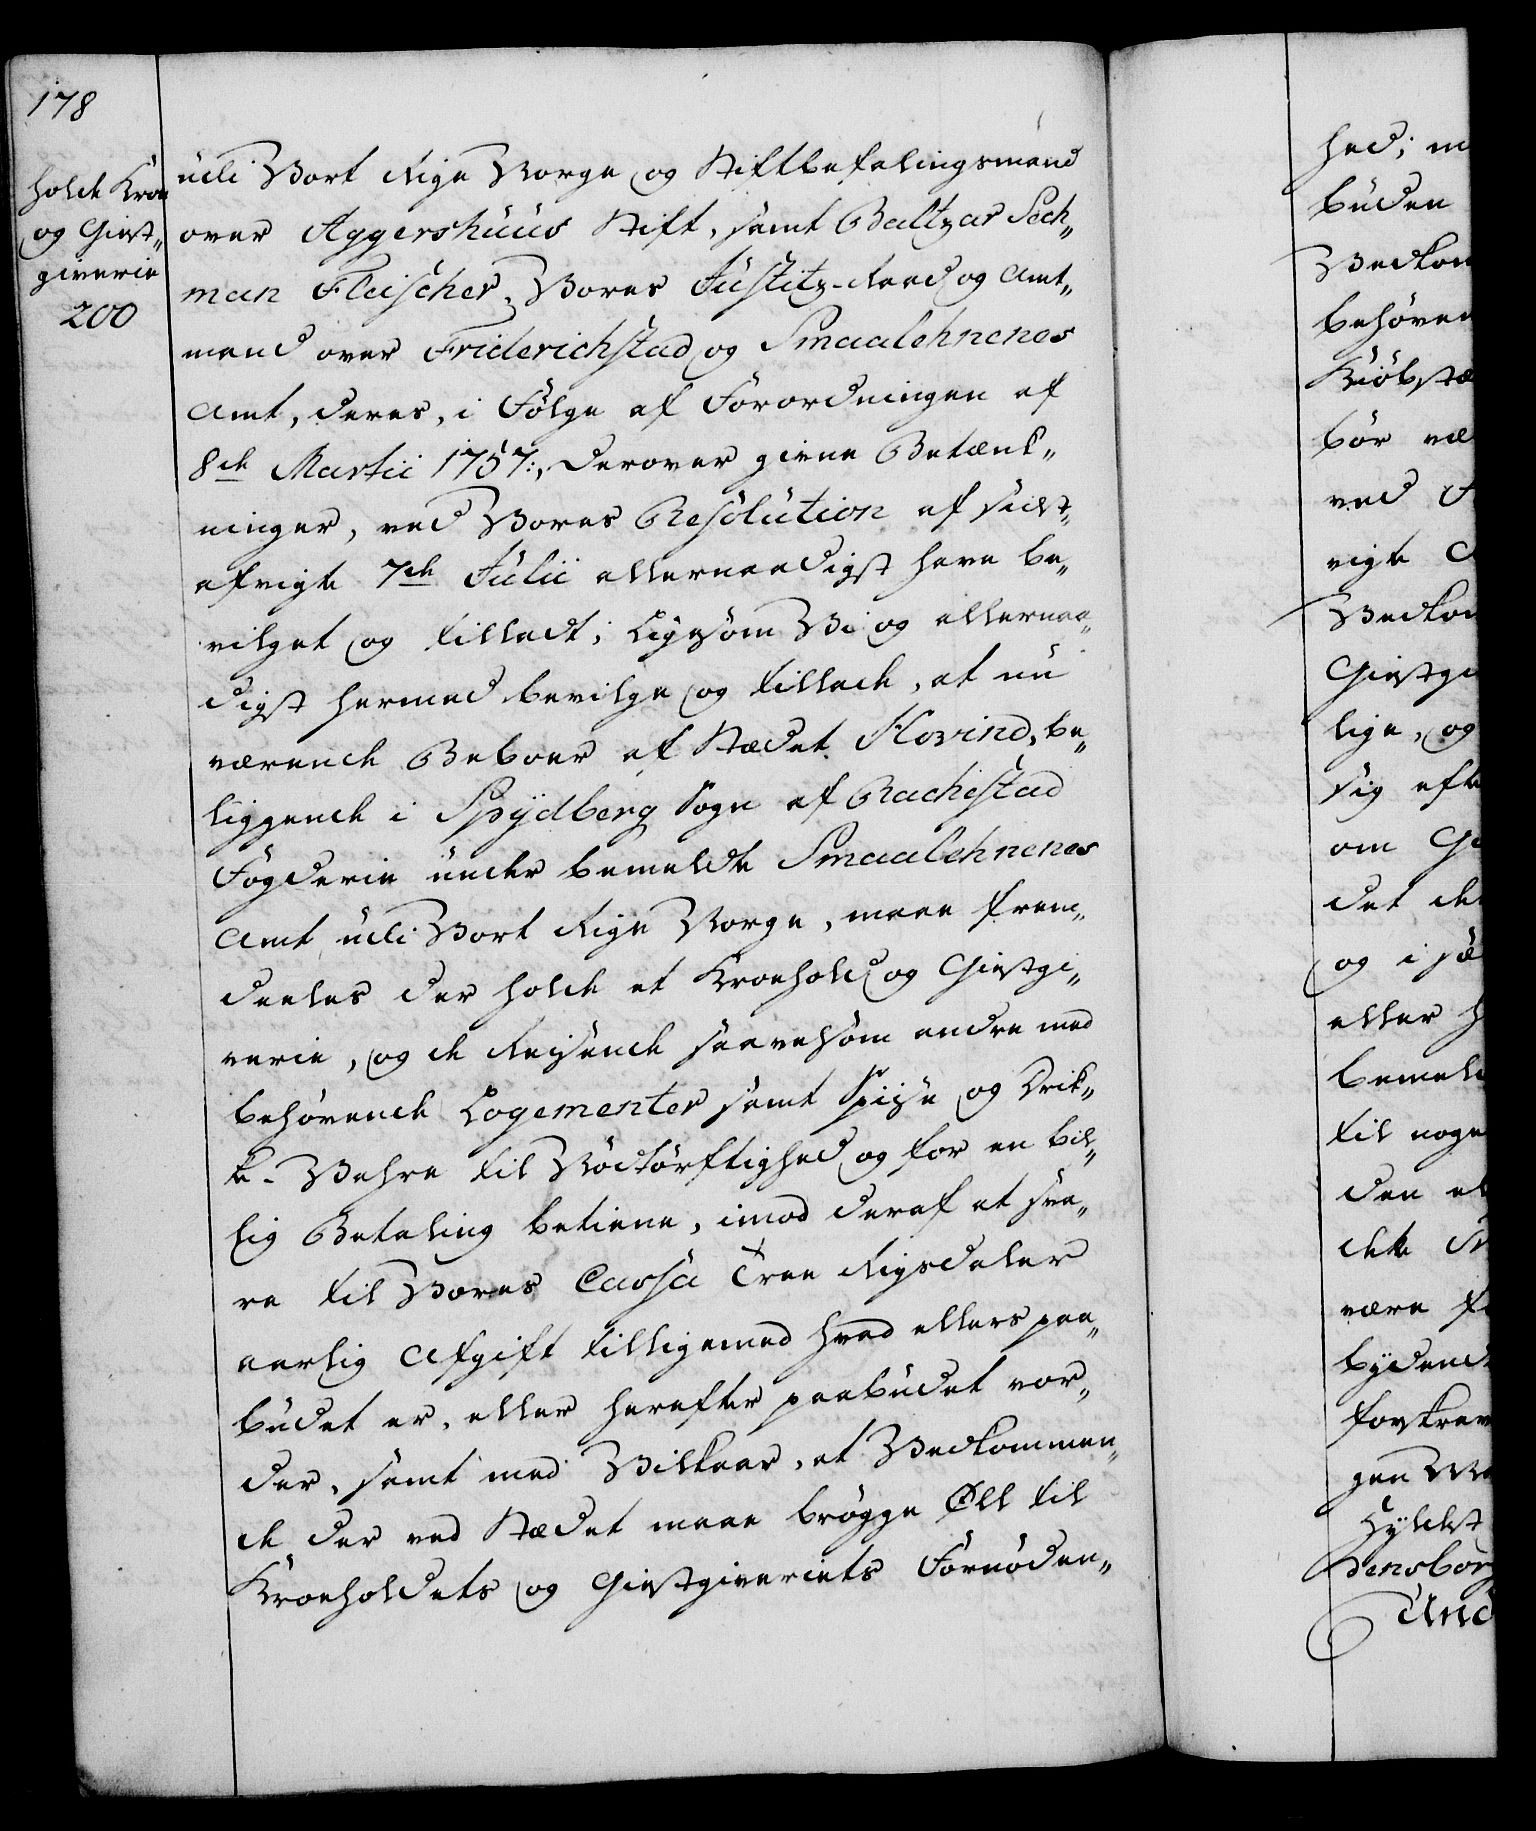 178
holde Kroe
og Giest„
giverie
200
udi Vort Rige Norge og Stiftbefalingsmand
over Aggershuus Stift, samt Baltzar Sech„
man Fleischer, Vores Justitz-Raad og Amt„
mand over Friderichstad og Smaalehnenes
Amt, deres, i Følge af Forordningen af
8de Martii 1757:, derover givne Betænk„
ninger, ved Vores Resolution af sidst„
afvigte 7de Julii allernaadigst have be„
vilget og tilladt; Ligesom Vi og allernaa„
digst hermed bevilge og tillade, at nu
værende Beboer af Stædet Hovind, be„
liggende i Spydberg Sogn af Rachestad
Fogderie under bemeldte Smaalehnenes
Amt udi Vort Rige Norge, maae frem„
deeles der holde et Kroehold og Giestgi„
verie, og de Reisende saavelsom andre med
behøvende Logementer samt Spise og Drik„
ke-Vahre til Nødtørftighed og for en bil„
lig Betaling betiene, imod deraf at sva„
re til Vores Cassa Tree Rigsdaler
aarlig Afgift tilligemed hvad ellers paa„
budet er, eller herefter paabudet vor„
der, samt med Vilkaar, at Vedkommen„
de der ved Stædet maae brøgge Øll til
Kroeholdets og Giestgiveriets Fornøden„
hed; m
buden
Vedkom
behøven
Kiøbstæ
bør væ
ved F
vigte
Vedkom
Giestgi
lige, og
sig efte
om Gi
det de
og i sæ
eller h
bemeld
til noge
den el
dte
være f
bydend
forskrev
gen
Hyldest
densborg
Und